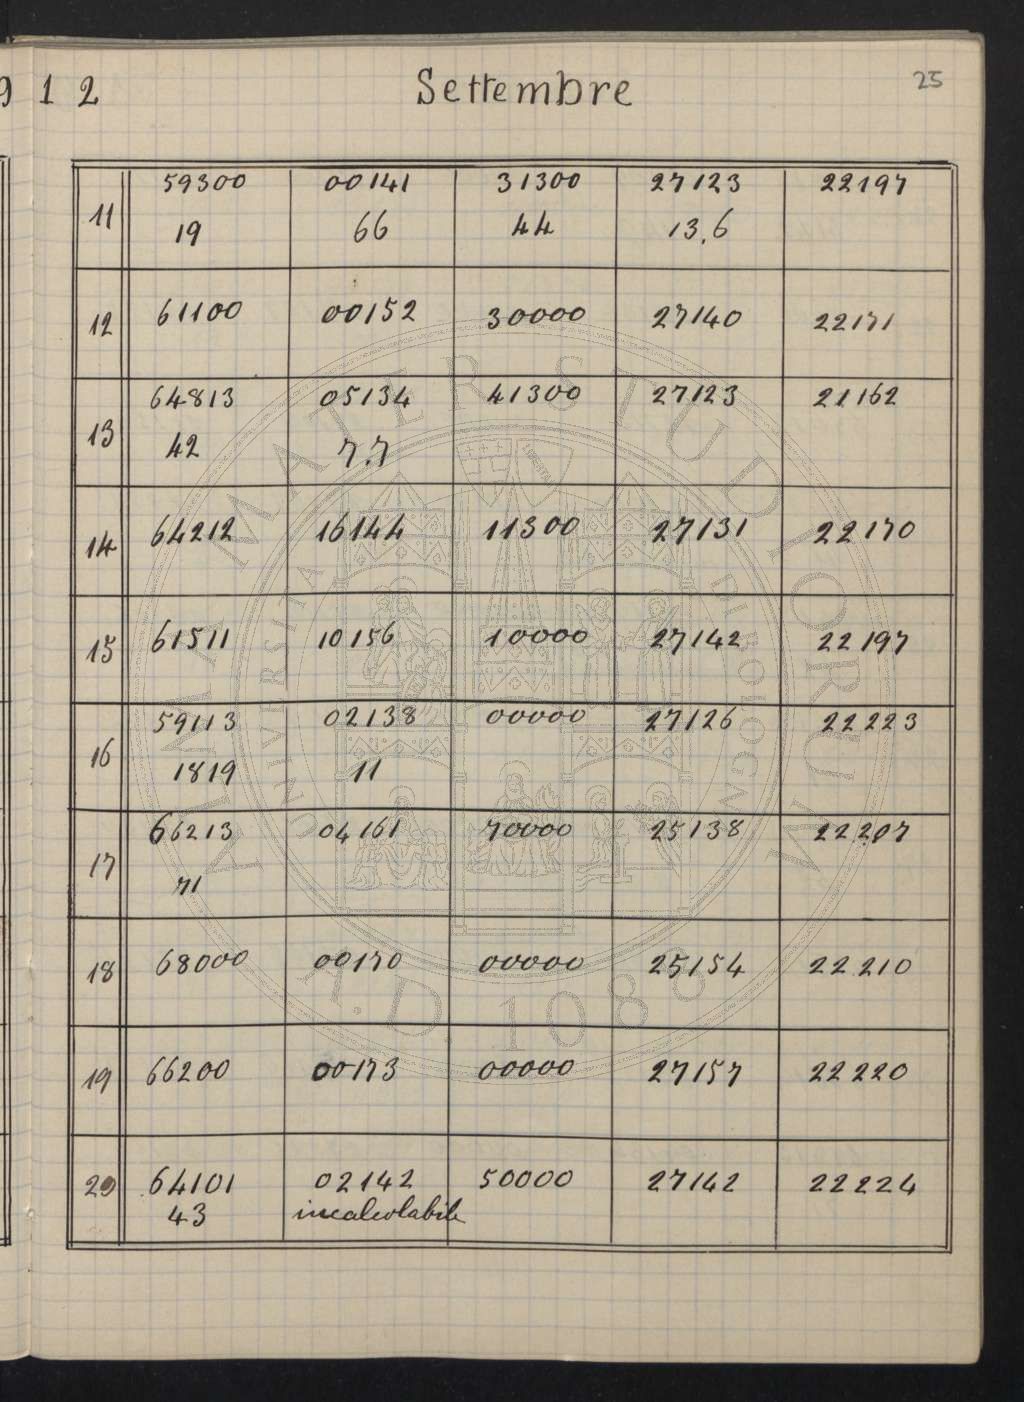 912 Settembre 25
11 59300 00141 31300 27123 22197
19 66 44 13.6
12 61100 00152 30000 27140 22171
13 64813 05134 41300 27123 21162
42 7.7
14 64212 16144 11300 27131 22170
15 61511 10156 10000 27142 22197
16 59113 02138 00000 27126 22223
1819 11
17 66213 04161 70000 25138 22207
71
18 68000 00170 00000 25154 22210
19 66200 00173 00000 27157 22220
20 64101 02142 50000 27142 22224
43 incalcolabile
ALMA MATER STUDIORUM
UNIVERSITÀ DI BOLOGNA
A.D. 1088